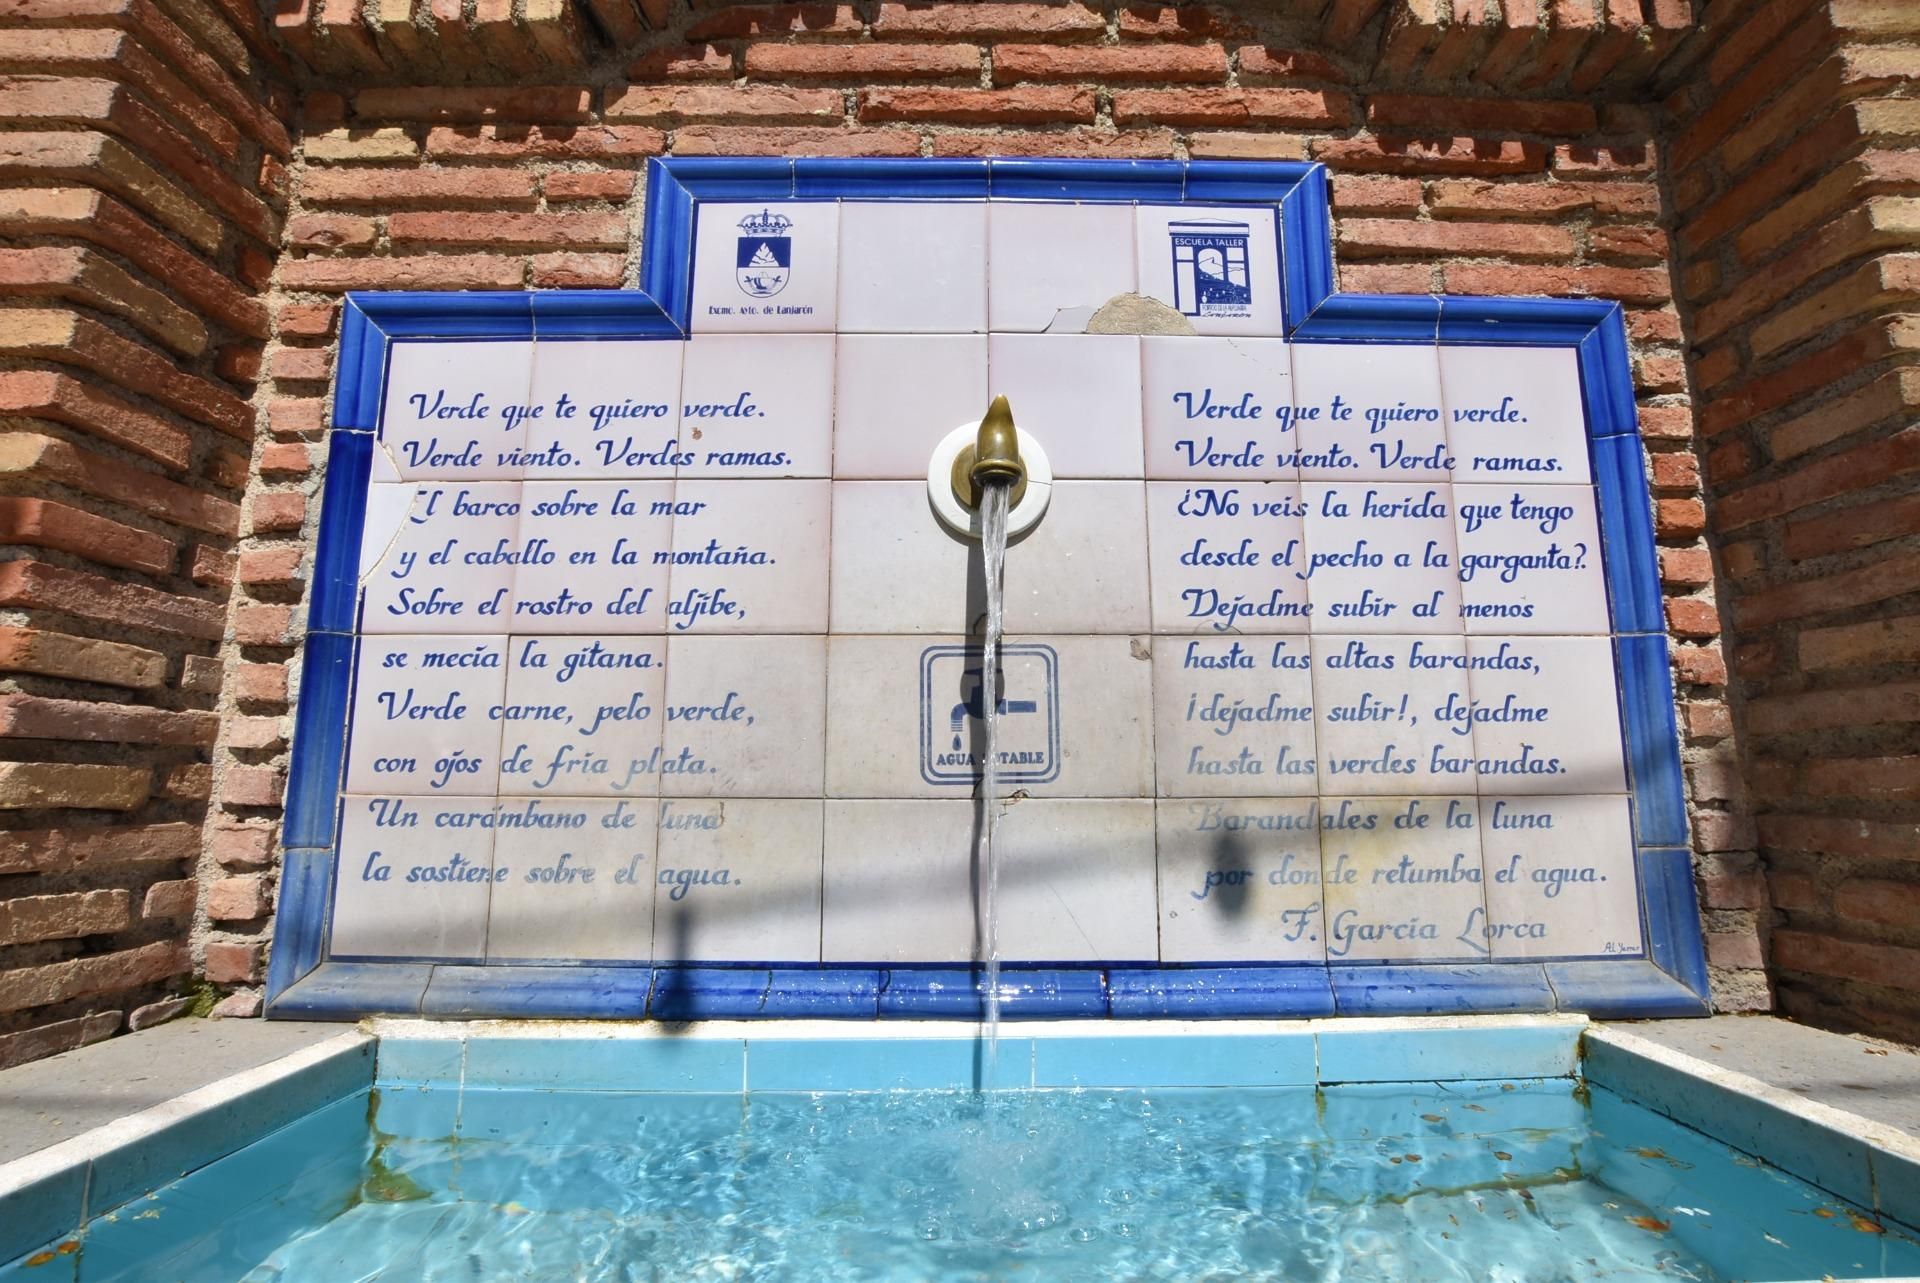 Exmo. Ayto. de Lanjarón
ESCUELA TALLER
Lanjarón
Verde que te quiero verde.
Verde viento. Verdes ramas.
El barco sobre la mar
y el caballo en la montaña.
Sobre el rostro del aljibe,
se mecía la gitana.
Verde carne, pelo verde,
con ojos de fría plata.
Un carámbano de luna
la sostiene sobre el agua.
AGUA POTABLE
Verde que te quiero verde.
Verde viento. Verde ramas.
¿No veis la herida que tengo
desde el pecho a la garganta?
Dejadme subir al menos
hasta las altas barandas,
¡dejadme subir!, dejadme
hasta las verdes barandas.
Barandales de la luna
por donde retumba el agua.
F. García Lorca